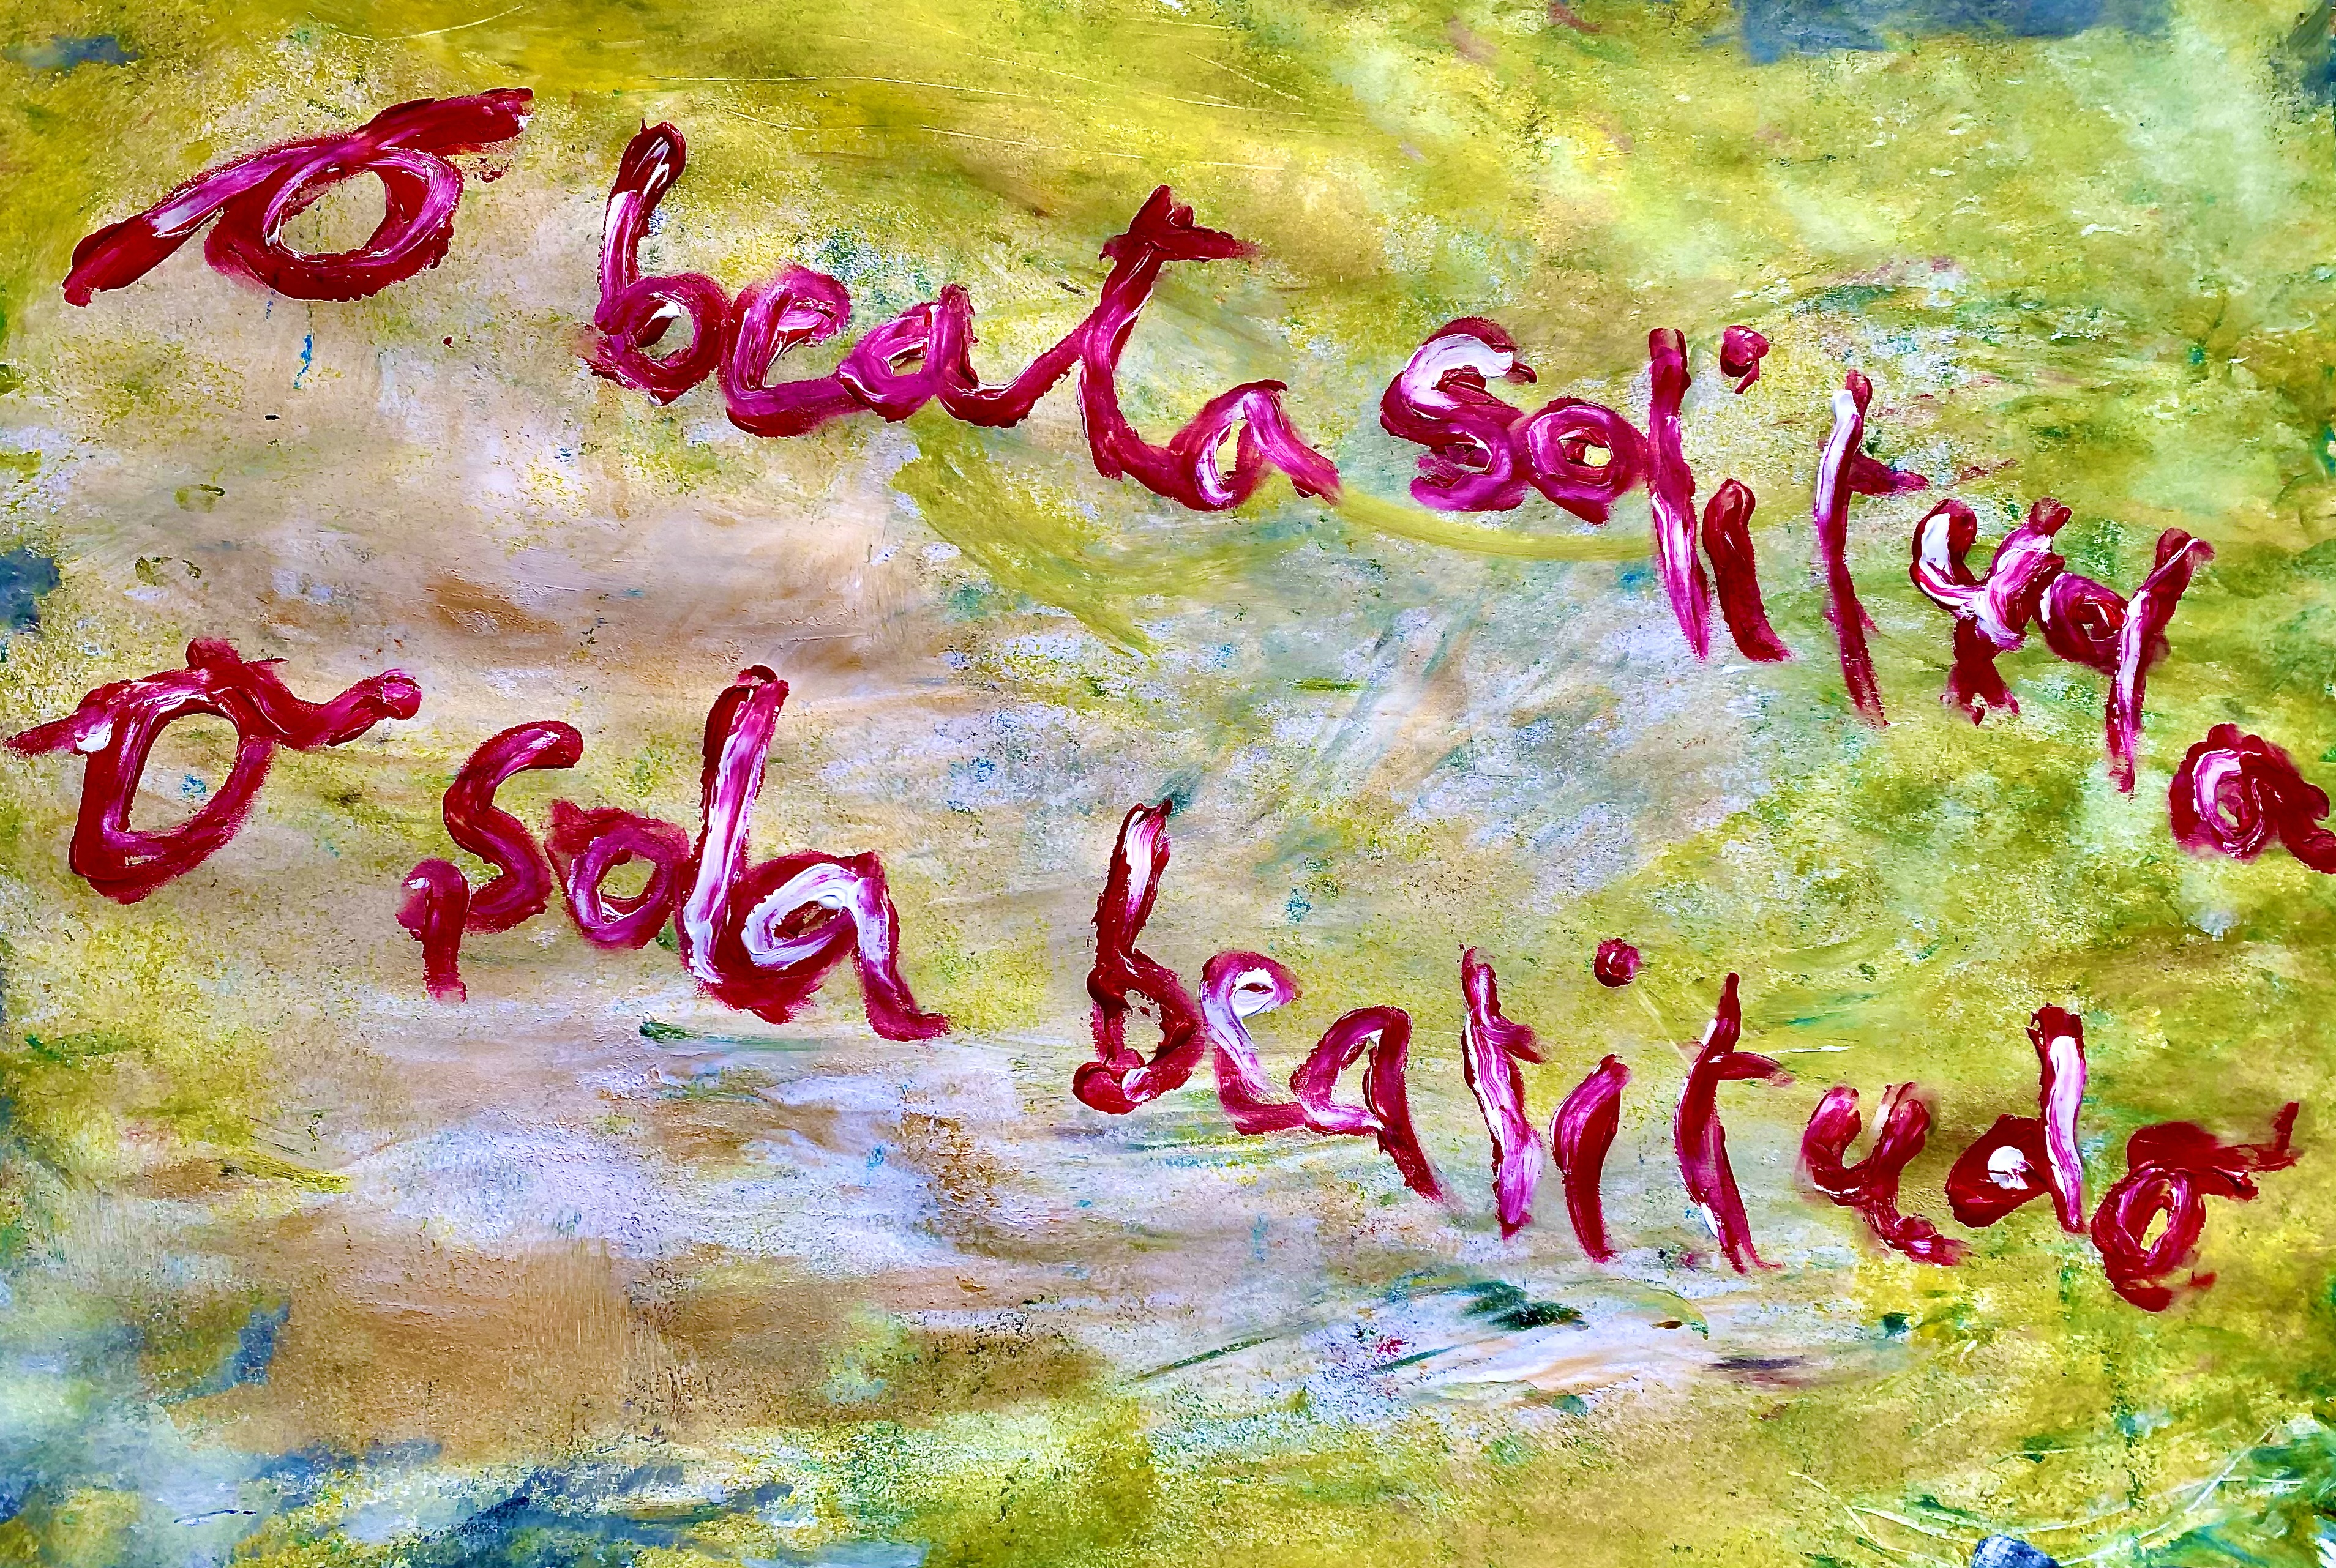 O beata solitudo
O sola beatitudo